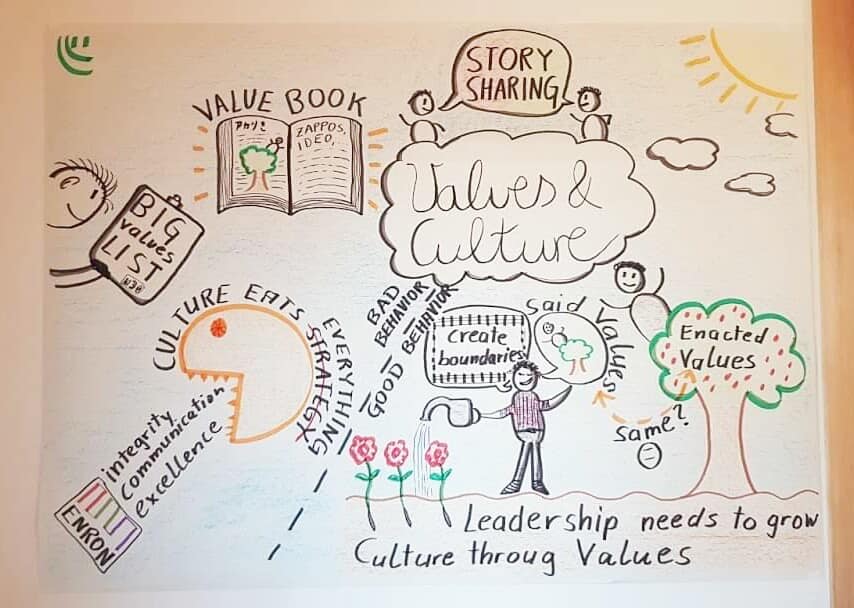 STORY
SHARING
VALUE BOOK
ZAPPOS,
IDEO,
Values &
Culture
BIG
values
LIST
CULTURE EATS
STRATEGY
EVERYTHING
BAD
BEHAVIOR
GOOD BEHAVIOR
Create
boundaries
Said Values
Enacted
Values
same?
integrity
Communication
excellence
ENRON
Leadership needs to grow
Culture throug Values